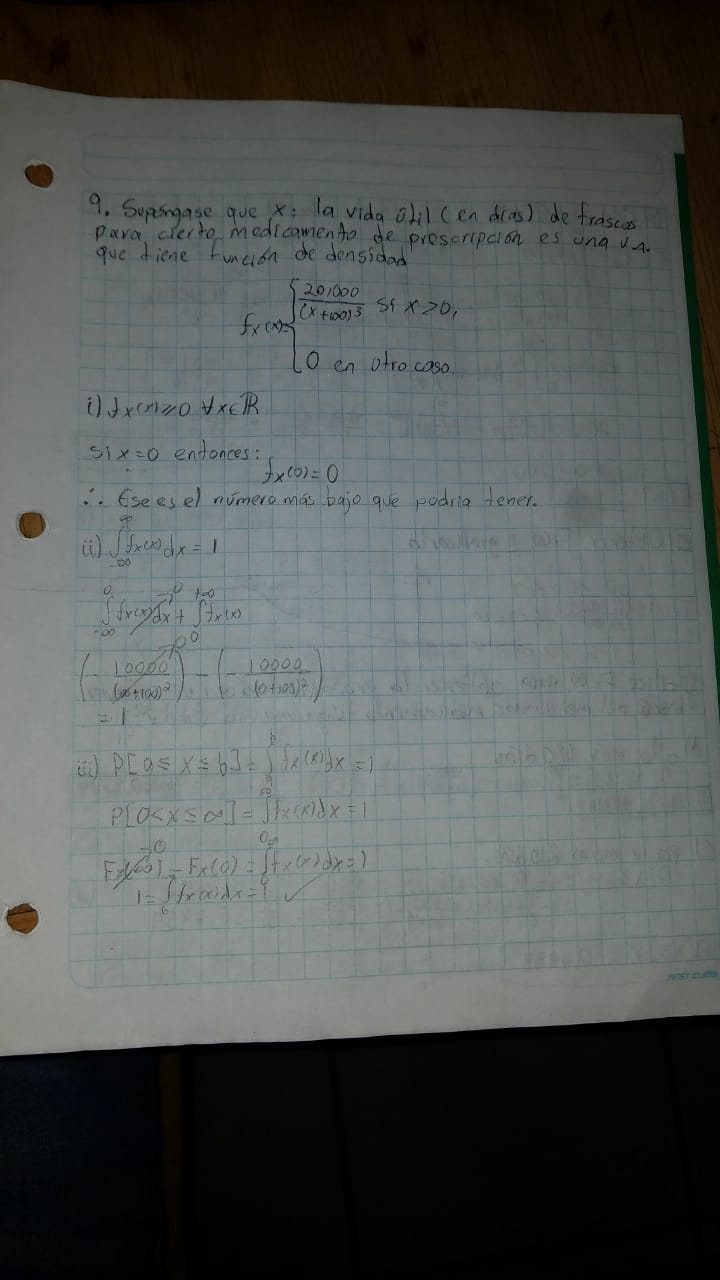 9. Supóngase que x: la vida útil (en días) de frascos
para cierto medicamento de prescripción es una v.a.
que tiene función de densidad
fx(x)= { 20,000 / (x+100)³ si x>0,
0 en otro caso.
i) fx(x)≥0 ∀x∈ℝ
si x=0 entonces:
fx(0)=0
∴ Ese es el número más bajo que podría tener.
ii) ∫_{-∞}^{∞} fx(x)dx = 1
∫_{-∞}^{0} fx(x)dx→0 + ∫_{0}^{+∞} fx(x)
(- 10000 / (∞+100)²)→0 - (- 10000 / (0+100)²)
= 1
iii) P[a≤x≤b] = ∫_{a}^{b} fx(x)dx = 1
P[0<x≤∞] = ∫_{0}^{∞} fx(x)dx = 1
Fx(∞)→0 - Fx(0) = ∫_{0}^{∞} fx(x)dx = 1
1 = ∫ fx(x)dx = 1 ✓